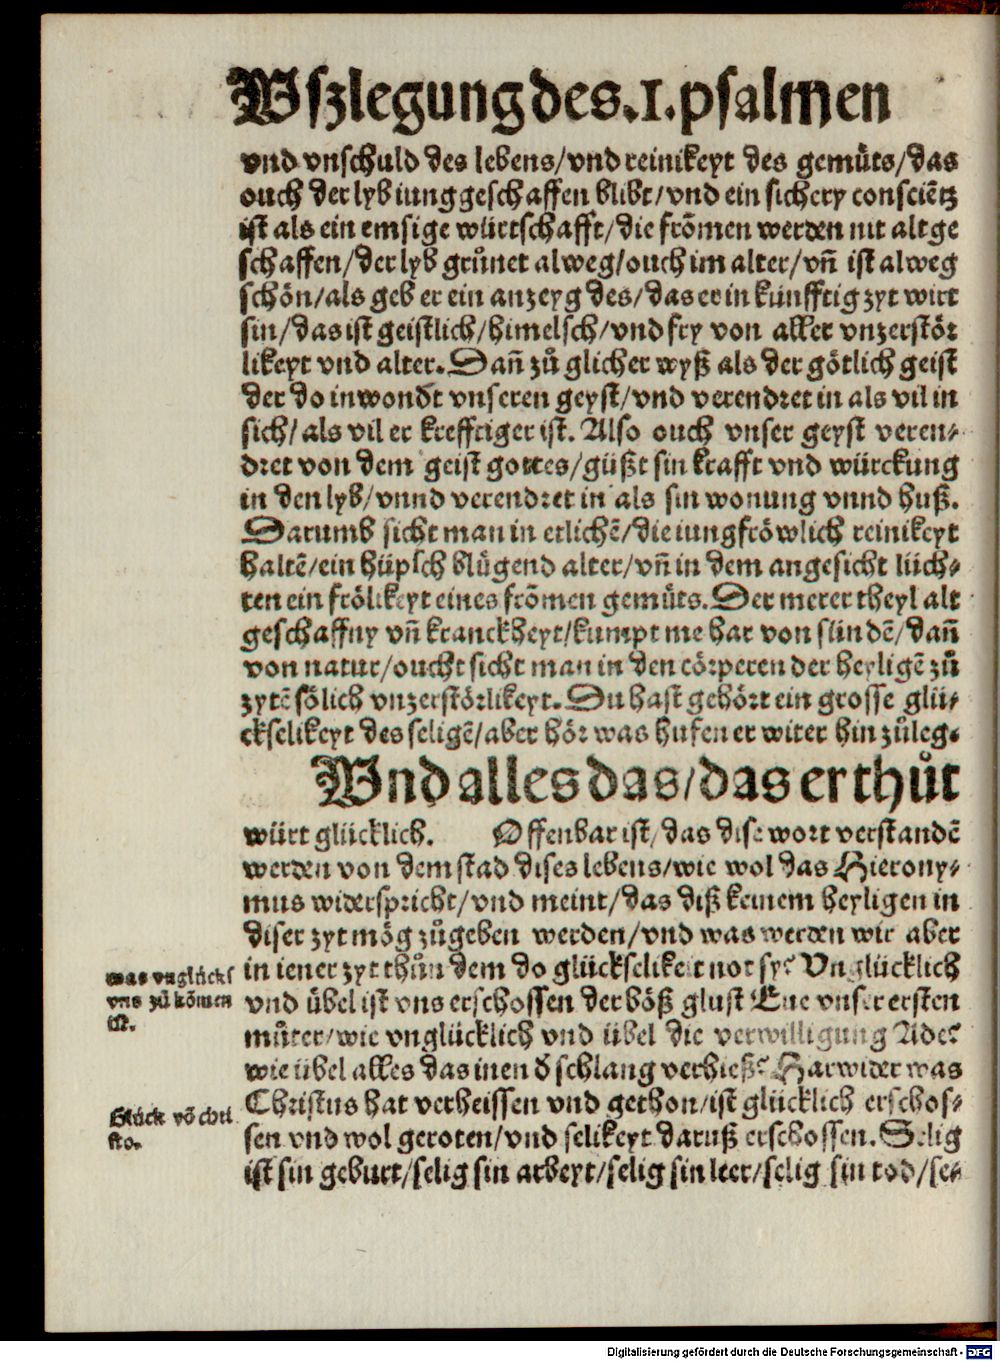 Uszlegung des .I. psalmen
vnd vnschuld des lebens/vnd reinikeyt des gemüts/das
ouch der lyb iung geschaffen blibt/vnd ein sichery consciẽtz
ist als ein emsige würtschafft/die frõmen werden nit alt ge
schaffen/der lyb grůnet alweg/ouch im alter/vñ ist alweg
schön/als geb er ein anzeyg des/das er in künfftig zyt wirt
sin/das ist geistlich/himelsch/vnd fry von aller vnzerstör
likeyt vnd alter. Dañ zů glicher wyß als der götlich geist
der do inwondt vnseren geyst/vnd verendret in als vil in
sich/als vil er krefftiger ist. Also ouch vnser geyst veren⸗
dret von dem geist gottes/güßt sin krafft vnd würckung
in den lyb/vnnd verendret in als sin wonung vnnd huß.
Darumb sicht man in etlichẽ/die iungfröwlich reinikeyt
haltẽ/ein hüpsch blůgend alter/vñ in dem angesicht lüch⸗
ten ein frölikeyt eines frõmen gemüts. Der merer theyl alt
geschaffny vñ kranckheyt/kumpt me har von sündẽ/dañ
von natur/oucht sicht man in den cörperen der heyligẽ zů
zytẽ sölich vnzerstörlikeyt. Du hast gehört ein grosse glü⸗
ckselikeyt des seligẽ/aber hör was hufen er witer hin zůleg.
Und alles das/das er thůt
würt glücklich. Offenbar ist/das dise wort verstandẽ
werden von dem stad dises lebens/wie wol das Hierony⸗
mus widerspricht/vnd meint/das diß keinem heyligen in
diser zyt mög zůgeben werden/vnd was werden wir aber
in iener zyt thůn dem do glückselikeit not sy? Unglücklich
vnd übel ist vns erschossen der böß glust Eue vnser ersten
můter/wie vnglücklich vnd übel die verwilligung Ade?
wie übel alles das inen d̕ schlang verhieß? Harwider was
Christus hat verheissen vnd gethon/ist glücklich erschos⸗
sen vnd wol geroten/vnd selikeyt daruß erschossen. Selig
ist sin geburt/selig sin arbeyt/selig sin leer/selig sin tod/se⸗
was vnglücks
vns zů kõmen
ist.
Glück võ chri
sto.
Digitalisierung gefördert durch die Deutsche Forschungsgemeinschaft - DFG